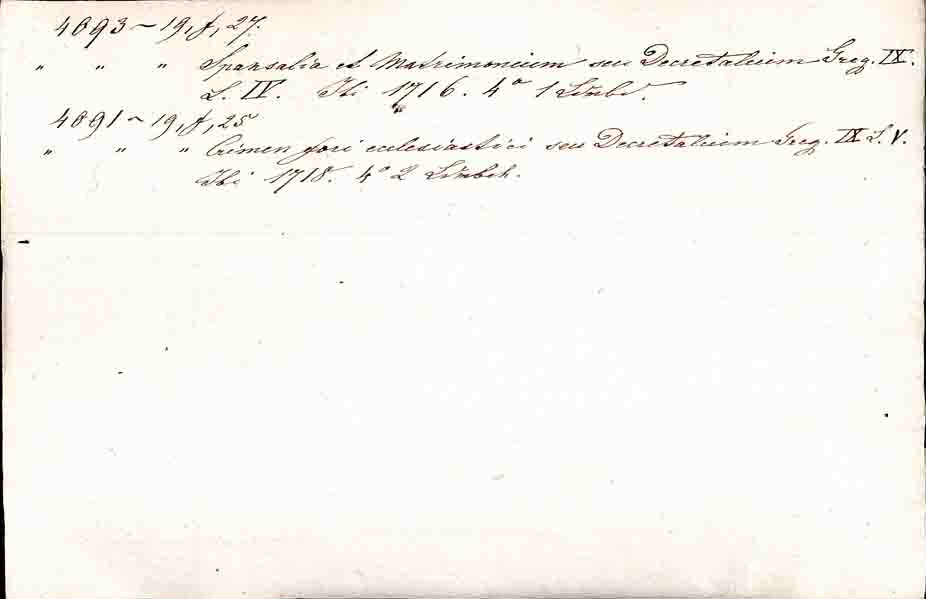 4093 ~ 19, f, 27.
" " " Sponsalia et Matrimonium seu Decretalium Greg. IX.
L. IV. Ibi 1716. 4° 1
4091 ~ 19, f, 25
" " " Crimen fori ecclesiastici seu Decretalium Greg. IX L. V.
Ibi 1718. 4° 2